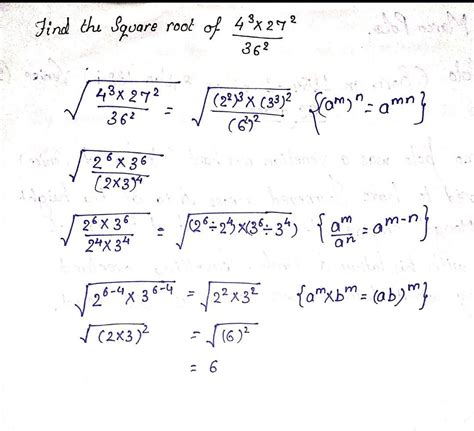 Find the Square root of 4³×27² / 36²
√(4³×27² / 36²) = √((2²)³×(3³)² / (6²)²) {(aᵐ)ⁿ = aᵐⁿ}
√(2⁶×3⁶ / (2×3)⁴)
√(2⁶×3⁶ / 2⁴×3⁴) = √(2⁶÷2⁴)×(3⁶÷3⁴) {aᵐ / aⁿ = aᵐ⁻ⁿ}
√(2⁶⁻⁴×3⁶⁻⁴) = √(2²×3²) {aᵐ×bᵐ = (ab)ᵐ}
√(2×3)² = √(6)²
= 6